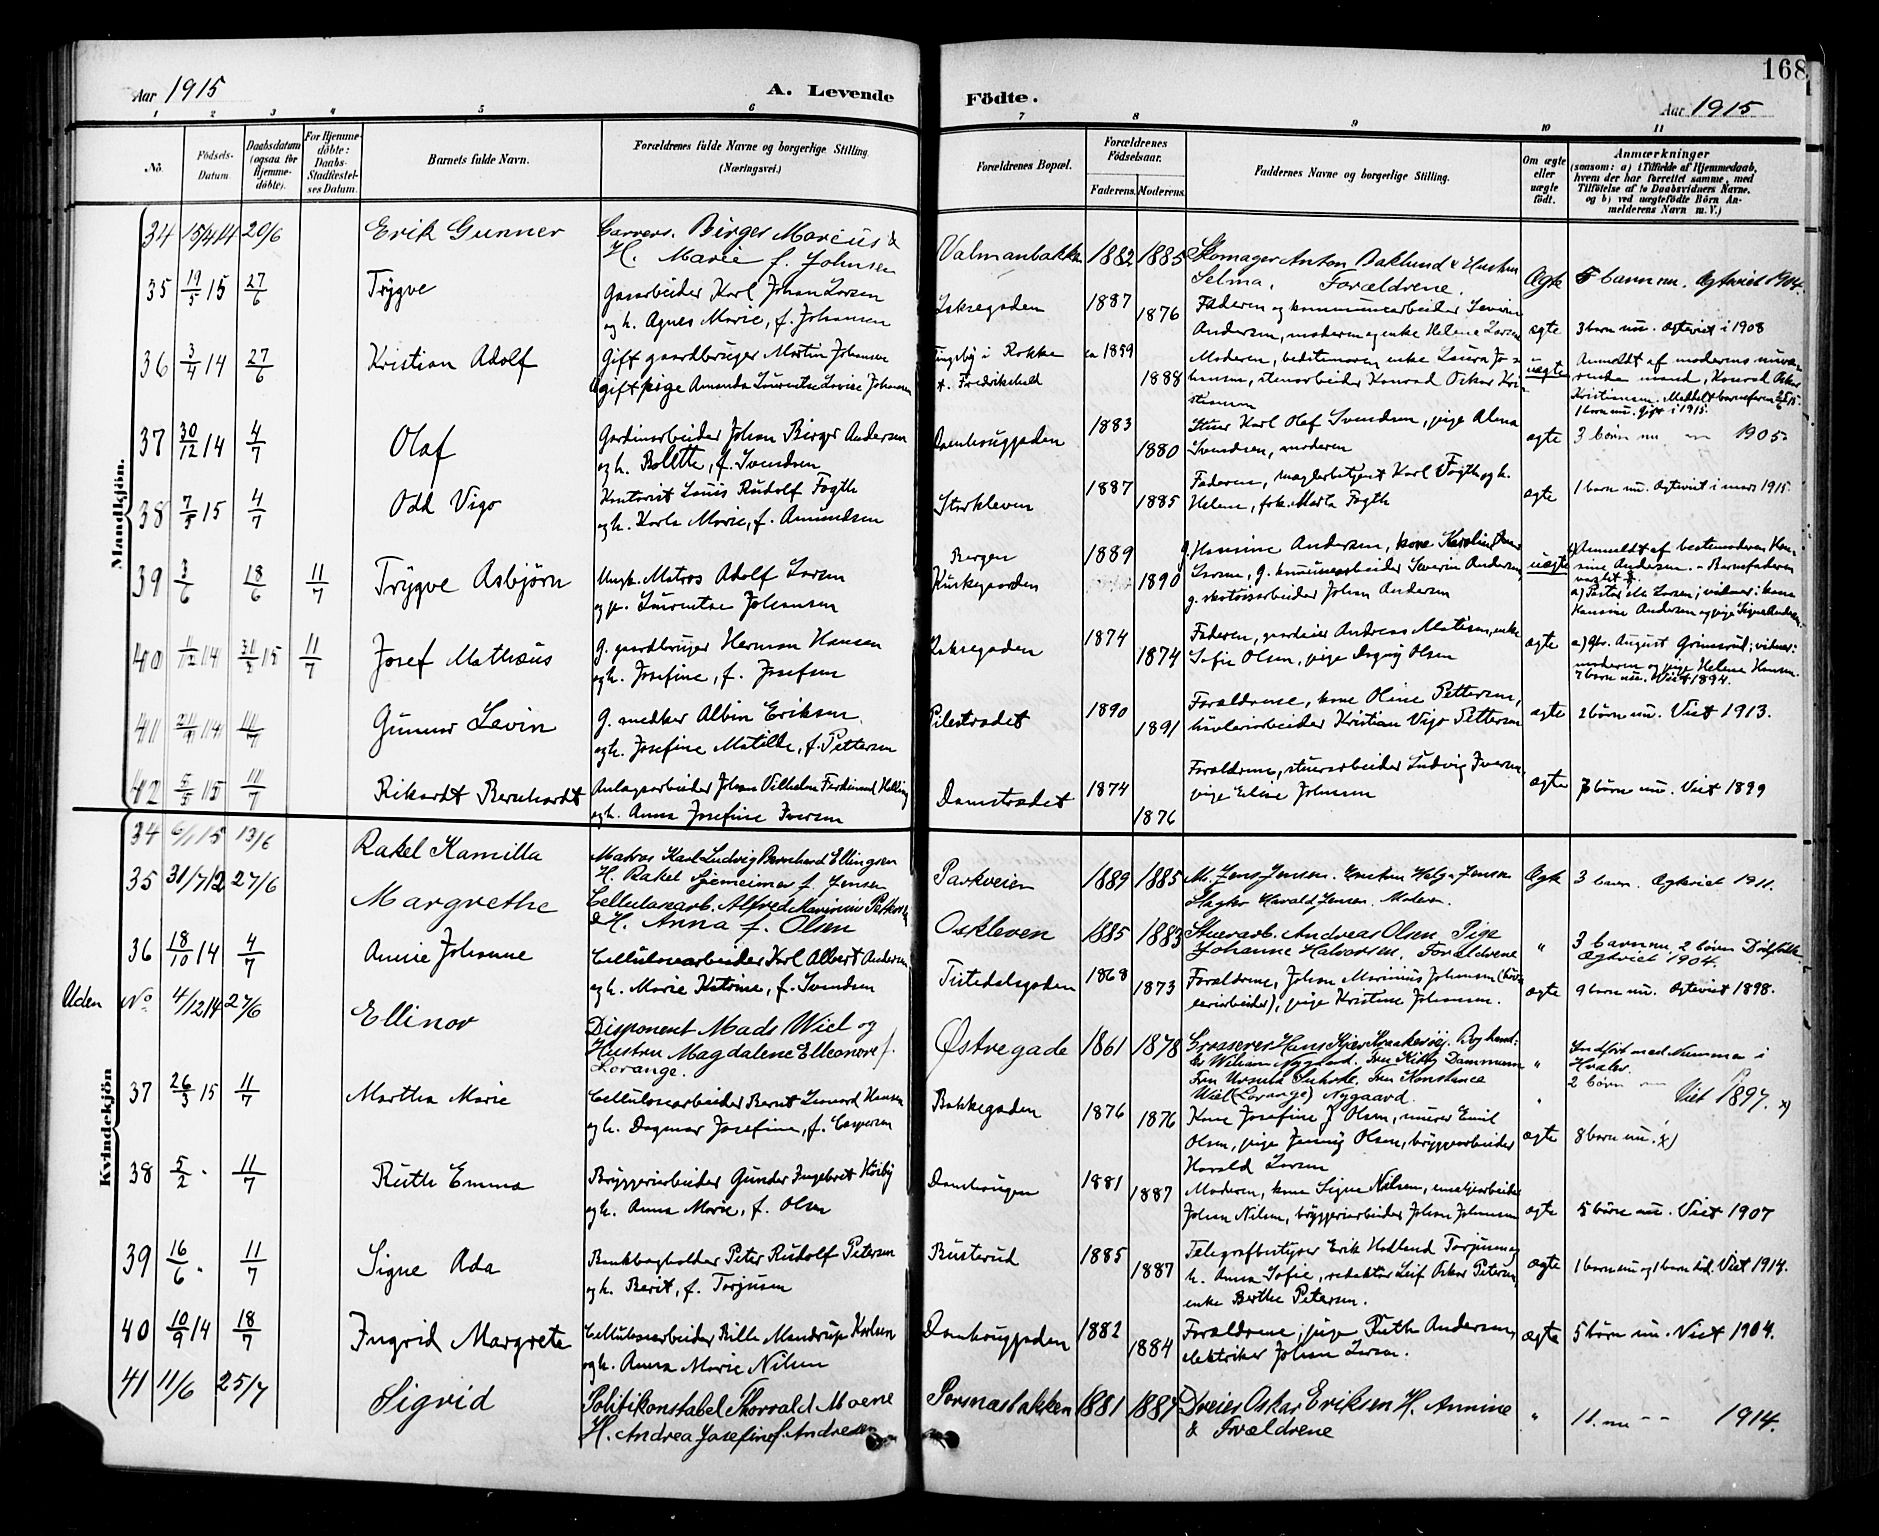 168
Aar 1915
A. Levende
Födte.
Aar 1915
1 2 3 4 5 6 7 8 9 10 11
No.
Födsels-Datum.
Daabsdatum (ogsaa for Hjemme-döbte).
For Hjemme-döbte: Daabs-Stadfæstel-ses Datum.
Barnets fulde Navn.
Forældrenes fulde Navne og borgerlige Stilling (Næringsvei.)
Forældrenes Bopæl.
Forældrenes Födselsaar.
Faderens. Moderens.
Faddernes Navne og borgerlige Stilling.
Om ægte eller uægte födt.
Anmærkninger
(saasom: a) i Tilfælde af Hjemmedaab,
hvem der har forrettet samme, med
Tilföielse af to Daabsvidners Navne.
og b) ved uægtefödte Börn An-
melderens Navn m. V.)
Mandkjön.
34 15/4 14 20/6 Erik Gunner
Garvers. Birger Marcus &
H. Marie f. Johnsen
Valmanbakken 1882 1885
Skomager Anton Baklund & Hustru
Selma, Forældrene.
Ægte 5 barn nu. Ægteviet 1904.
35 19/5 15 27/6 Trygve
Gasarbeider Karl Johan Larsen
og h. Agnes Marie, f. Johansen
1887 1876
Faderen og kommunearbeider Severin
Andersen, moderen og enke Helene Larsen
ægte 3 barn nu. Ægteviet i 1908
36 3/4 14 27/6 Kristian Adolf
Gift gaardbruger Martin Johansen
Ugift pige Amanda Laurentse Lovise Johansen
Tingeby i Rokke
v. Fredrikshald
ca 1859 1888
Moderen, bedstemoren enke Laura Jo-
hansen, stenarbeider Konrad Oskar Kri-
stiansen
uægte Anmeldt af moderens nuvæ-
rende mand, Konrad Oskar
Kristiansen. Meddelt barnefaren 25/6 15.
1 barn nu. Gift i 1915.
37 30/12 14 4/7 Olaf
Gardinarbeider Johan Birger Andersen
og h. Bolette, f. Svendsen
Damhauggaden 1883 1880
Stuer Karl Olaf Svendsen, pige Alma
Svendsen, moderen
ægte 3 børn nu. — 1905
38 7/5 15 4/7 Odd Vigo
Kontorist Louis Rudolf Fagth
og h. Karla Marie, f. Amundsen
Storkleven 1887 1885
Faderen, maglerbetjent Karl Fagth og h.
Helene, frk. Marta Fagth
ægte 1 barn nu. Ægteviet i mars 1915.
39 3/6 18/6 11/7 Trygve Asbjørn
Ungk. Matros Adolf Larsen
og p. Laurentse Johansen
Bergen
Kirkegaarden
1889 1890
g. Hansine Andersen, kone Karoline
Larsen, g. kommunearbeider Severin Andersen,
g. skotøisarbeider Johan Andersen
uægte b) Anmeldt af bestemoderen Han-
sine Andersen. - Barnefaderen
a) Pastor Larsen; vidner: kone
Hansine Andersen og pige Signe Andersen.
40 11/12 14 31/3 15 11/7 Josef Mathæus
G. gaardbruger Herman Hansen
og h. Josefine, f. Josefsen
Bakkegaden 1874 1874
Faderen, gardeier Andreas Matisen, enke
Sofie Olsen, pige Dagny Olsen
ægte a) Gbr. August Grimsrud; vidner:
moderen og pige Helene Hansen.
7 barn nu. Viet 1894.
41 21/9 14 11/7 Gunnar Levin
G. Albin Eriksen
og h. Josefine Matilde, f. Pettersen
Pilestrædet 1890 1891
Forældrene, kone Oline Pettersen,
høvleriarbeider Kristian Vigo Pettersen
ægte 2 børn nu. Viet 1913.
42 5/5 15 11/7 Rikardt Bernhardt
Anlægsarbeider Johan Vilhelm Ferdinand Helling
og h. Anna Josefine Iversen
Damstrædet 1874 1876
Forældrene, stuerarbeider Ludvig Iversen,
pige Elise Johnsen
ægte 7 børn nu. Viet 1899
Kvindekjön
34 6/1 15 13/6 Rakel Kamilla
Matros Karl Ludvig Bernhard Ellingsen
H. Rakel f. Jensen
Parkveien 1889 1885
M. Jens Jensen. Hustru Helga Jensen
Slagter Harald Jensen. Moderen.
Ægte 3 barn. Ægteviet 1911.
35 31/7 12 27/6 Margrethe
Cellulosearb. Alfred Marinius Pettersen
& H. Anna f. Olsen
Oskleven 1885 1883
Stuerarb. Andreas Olsen Pige
Johanne Halvorsen, Forældrene
" 3 barn nu, 2 børn Dødfødte
Ægteviet 1904.
36 18/10 14 4/7 Annie Johanne
Cellulosearbeider Karl Albert Andersen
og h. Marie Katrine, f. Svendsen
Tistedalsgaden 1868 1873
Forældrene, Johan Marinius Johansen
pige Kristine Johansen.
ægte 9 barn nu. Ægteviet 1898.
Uden No. 4/12 14 27/6 Ellinor
Disponent Mads Wiel og
Hustru Magdalene Elleonore f.
Lorange.
Østregade 1861 1878
Grosserer Hans Kjær
Wiliam Nygaard. Fru Kitty Dammann
Fru Ursula Fru Konstance
Wiel (Lorange) Nygaard.
" Indført med Nummer i
Hvaler.
2 børn — Viet 1897. x)
37 26/3 15 11/7 Martha Marie
Cellulosearbeider Bernt Leonard Hansen
og h. Dagmar Josefine, f. Caspersen
Bakkegaden 1876 1876
Kone Josefine J Olsen, murer Emil
Olsen, pige Jenny Olsen, bryggearbeider
Harald Larsen
ægte 8 barn nu. x)
38 5/2 " 11/7 Ruth Emma
Bryggeriarbeider Gunder Ingebret Høiby
og h. Anna Marie, f. Olsen
Damhaugen 1881 1887
Moderen, kone Signe Nilsen,
Johan Nilsen, bryggeriarbeider Johan Johansen
ægte 5 børn nu. Viet 1907
39 16/6 " 11/7 Signe Ada
Bankbogholder Peter Rudolf Petersen
og h. Berit, f. Torjusen
Busterud 1885 1887
Telegrafbestyrer Erik Hodland Torjusen og
h. Anna Sofie, redaktør Leif Oskar Petersen,
enke Berthe Petersen.
ægte 1 barn nu og 1 barn død. Viet 1914.
40 10/9 14 18/7 Ingrid Margrete
Cellulosearbeider Bille Mandrup Karlsen
og h. Anna Marie Nilsen
Damhauggaden 1882 1884
Forældrene; pige Ruth Andersen,
elektriker Johan Larsen.
ægte 5 børn nu. Viet 1904.
41 11/6 25/7 Sigrid
Politikonstabel Thorvald Moene
H. Andrea Josefine f. Andresen
Porsnæsbakken 1881 1887
Dreier Oskar Eriksen H. Annine
& Forældrene
" 1 b. nu - - 1914.